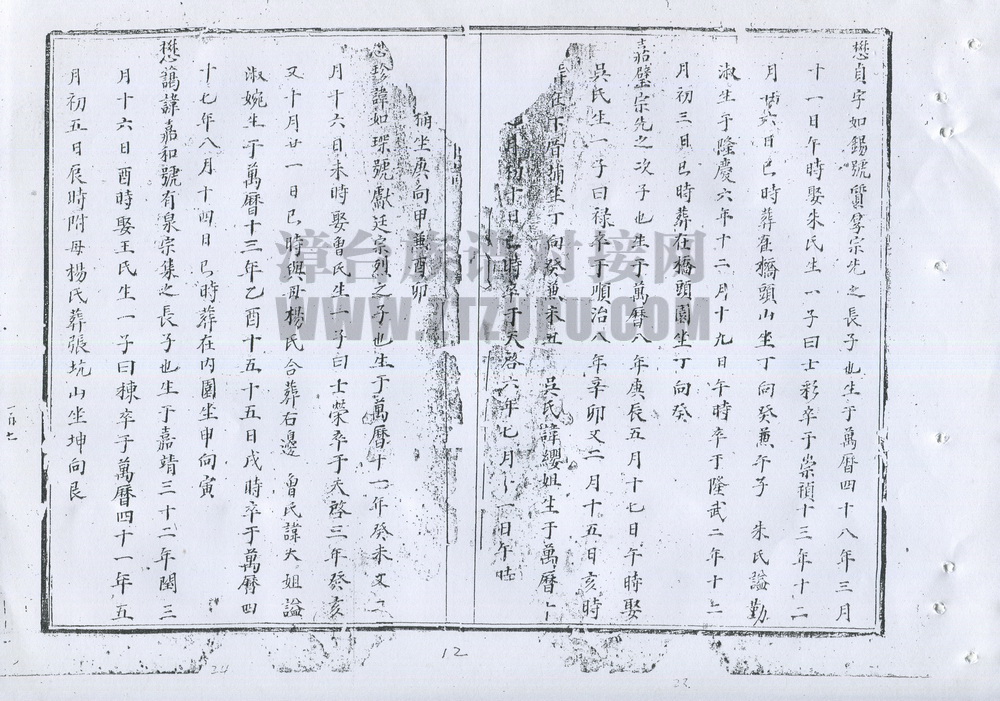 懋貞字如錫號質篆宗先之長子也生于萬曆四十八年三月
十一日午時娶朱氏生一子曰士彩卒于崇禎十三年十二
月廿六日巳時葬在橋頭山坐丁向癸兼午子 朱氏謚勤
淑生于隆慶六年十二月十九日午時卒于隆武二年十二
月初三日巳時葬在橋頭園坐丁向癸
嘉璧宗先之次子也生于萬曆八年庚辰五月十七日午時娶
吳氏生一子曰祿卒于順治八年辛卯又二月十五日亥時
葬在下厝埔坐丁向癸兼未丑 吳氏諱纓姐生于萬曆十
月初十日巳時卒于天啓六年七月 一日午時
埔坐庚向甲兼酉卯
懋珍諱如琛號獻廷宗烈之子也生于萬曆十一年癸未又二
月十六日未時娶魯氏生一子曰士榮卒于天啓三年癸亥
又十月廿一日巳時與母楊氏合葬右邊 魯氏諱大姐謚
淑婉生于萬曆十三年乙酉十五十五日戌時卒于萬曆四
十七年八月十四日巳時葬在內園坐申向寅
懋藹諱嘉和號有泉宗集之長子也生于嘉靖三十二年閏三
月十六日酉時娶王氏生一子曰棟卒于萬曆四十一年五
月初五日辰時附母楊氏葬張坑山坐坤向艮
漳台族谱对接网
WWW.ZTZUPU.COM
12
24
23